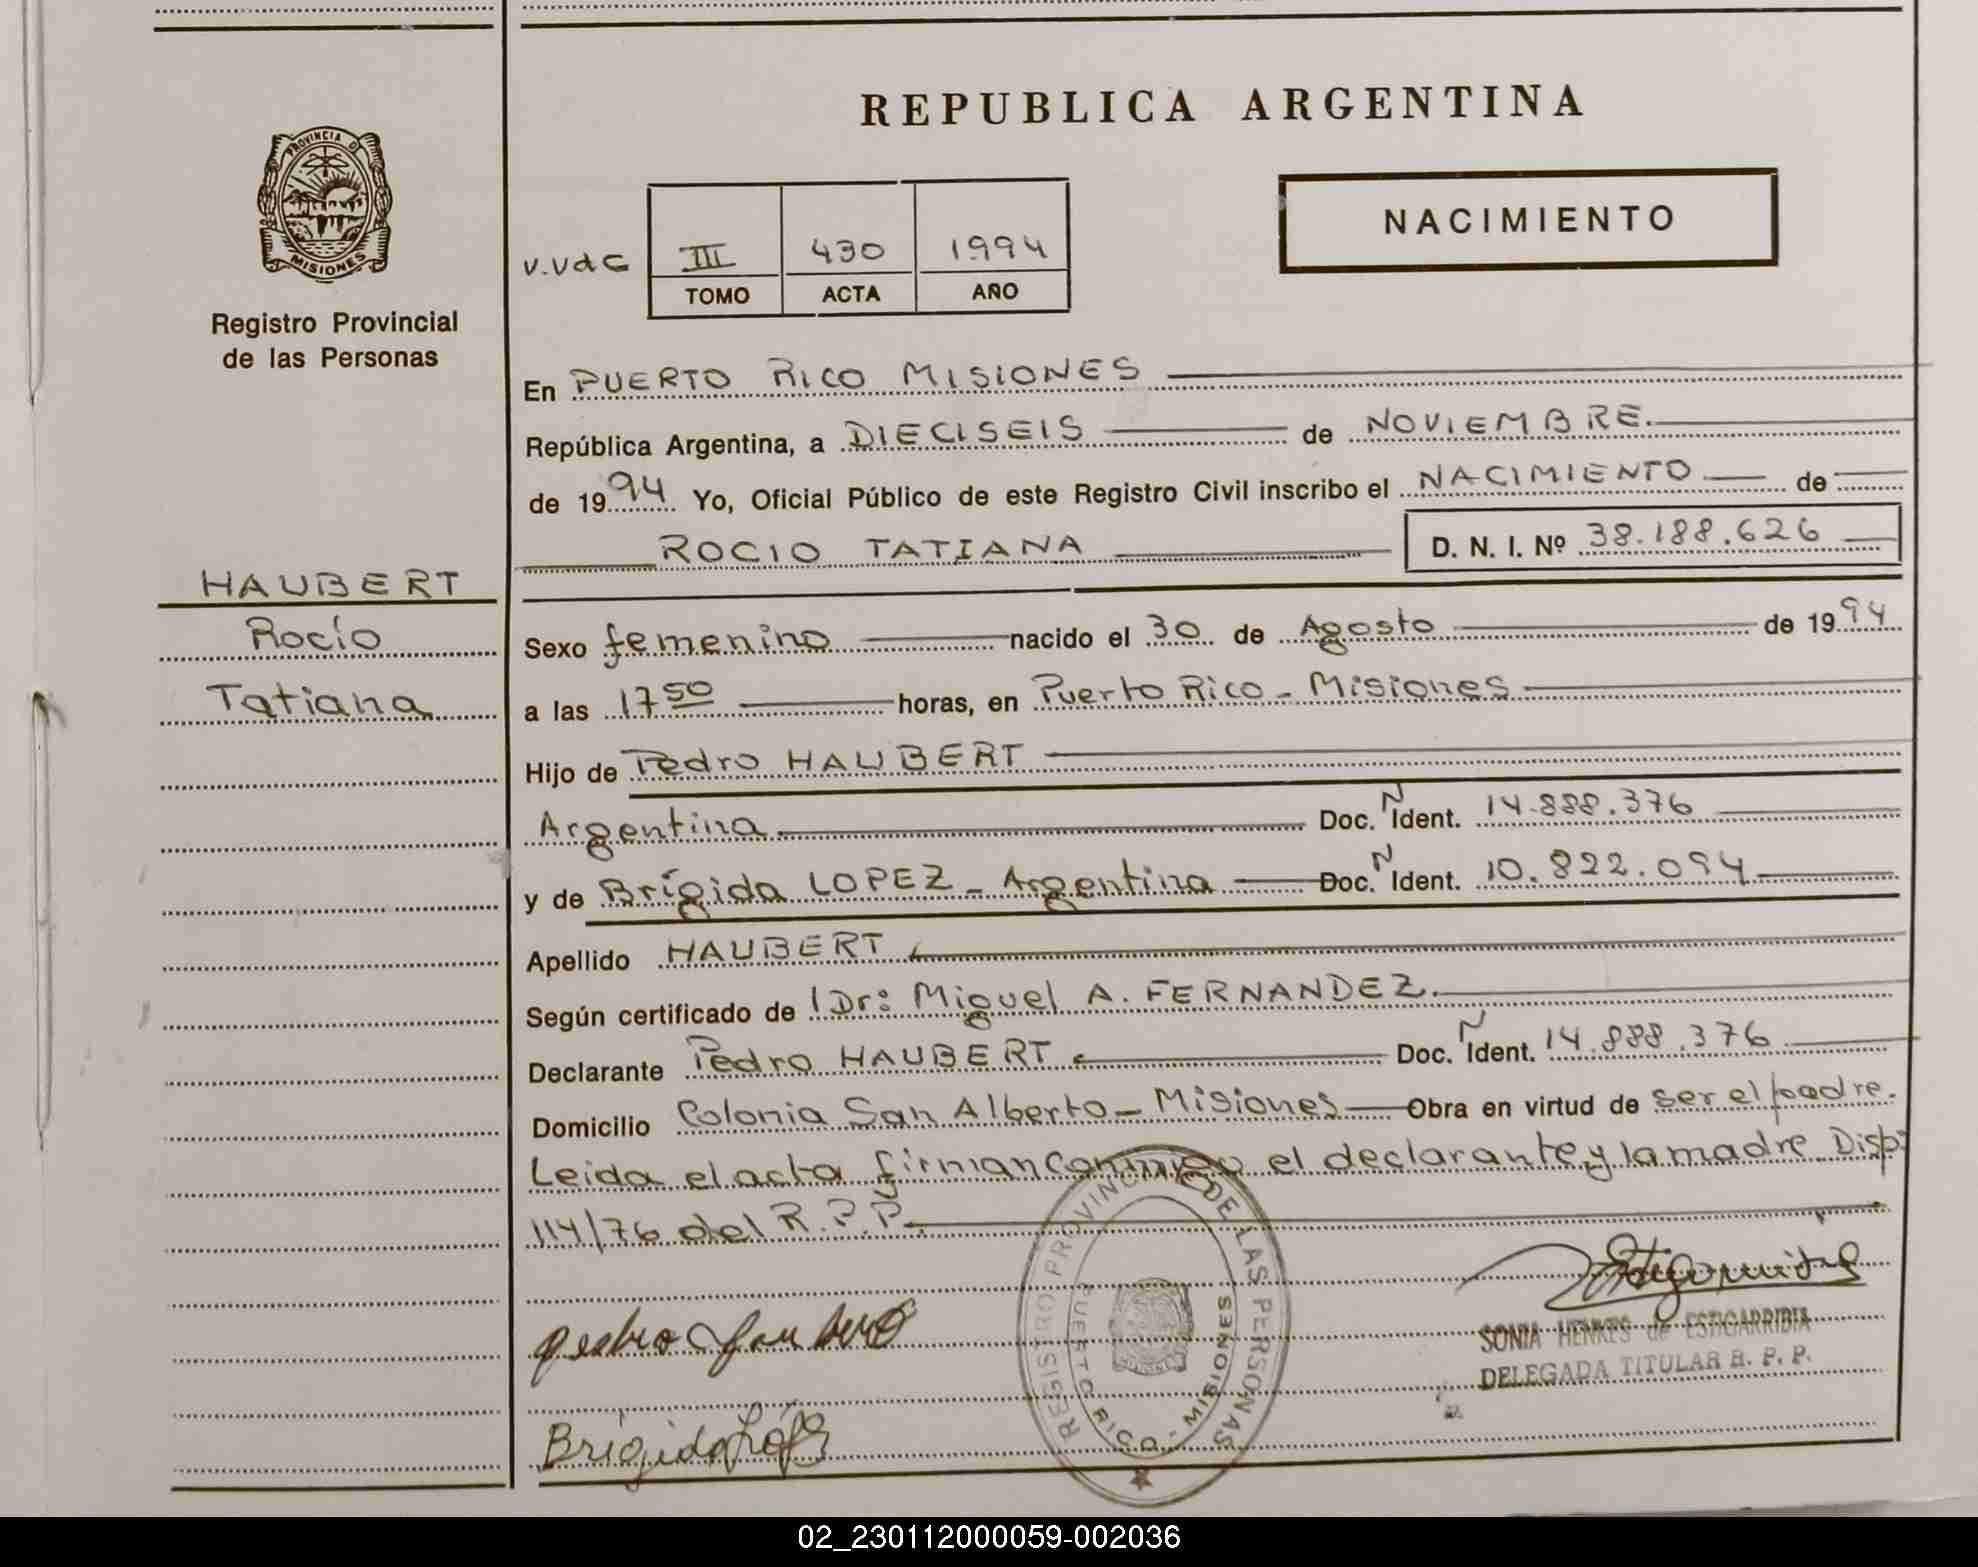 PROVINCIA D
MISIONES
Registro Provincial
de las Personas
HAUBERT
Rocío
Tatiana
REPUBLICA ARGENTINA
NACIMIENTO
V.VdC III 430 1994
TOMO ACTA AÑO
En PUERTO RICO MISIONES
República Argentina, a DIECISEIS de NOVIEMBRE.
de 1994 Yo, Oficial Público de este Registro Civil inscribo el NACIMIENTO de
ROCIO TATIANA D. N. I. Nº 38.188.626
Sexo femenino nacido el 30 de Agosto de 1994
a las 17 50 horas, en Puerto Rico - Misiones
Hijo de Pedro HAUBERT
Argentina Doc. N Ident. 14.888.376
y de Brígida LOPEZ - Argentina Doc. N Ident. 10.822.094
Apellido HAUBERT
Según certificado de Dr: Miguel A. FERNANDEZ.
Declarante Pedro HAUBERT Doc. N Ident. 14.888.376
Domicilio Colonia San Alberto - Misiones Obra en virtud de ser el padre.
Leida el acta firman conmigo el declarante y la madre Disp:
114/76 del R.P.P.
REGISTRO PROVINCIAL DE LAS PERSONAS
PUERTO RICO - MISIONES
SONIA HENKES de ESTIGARRIBIA
DELEGADA TITULAR R. P. P.
Pedro Haubert
Brígida López
02_230112000059-002036